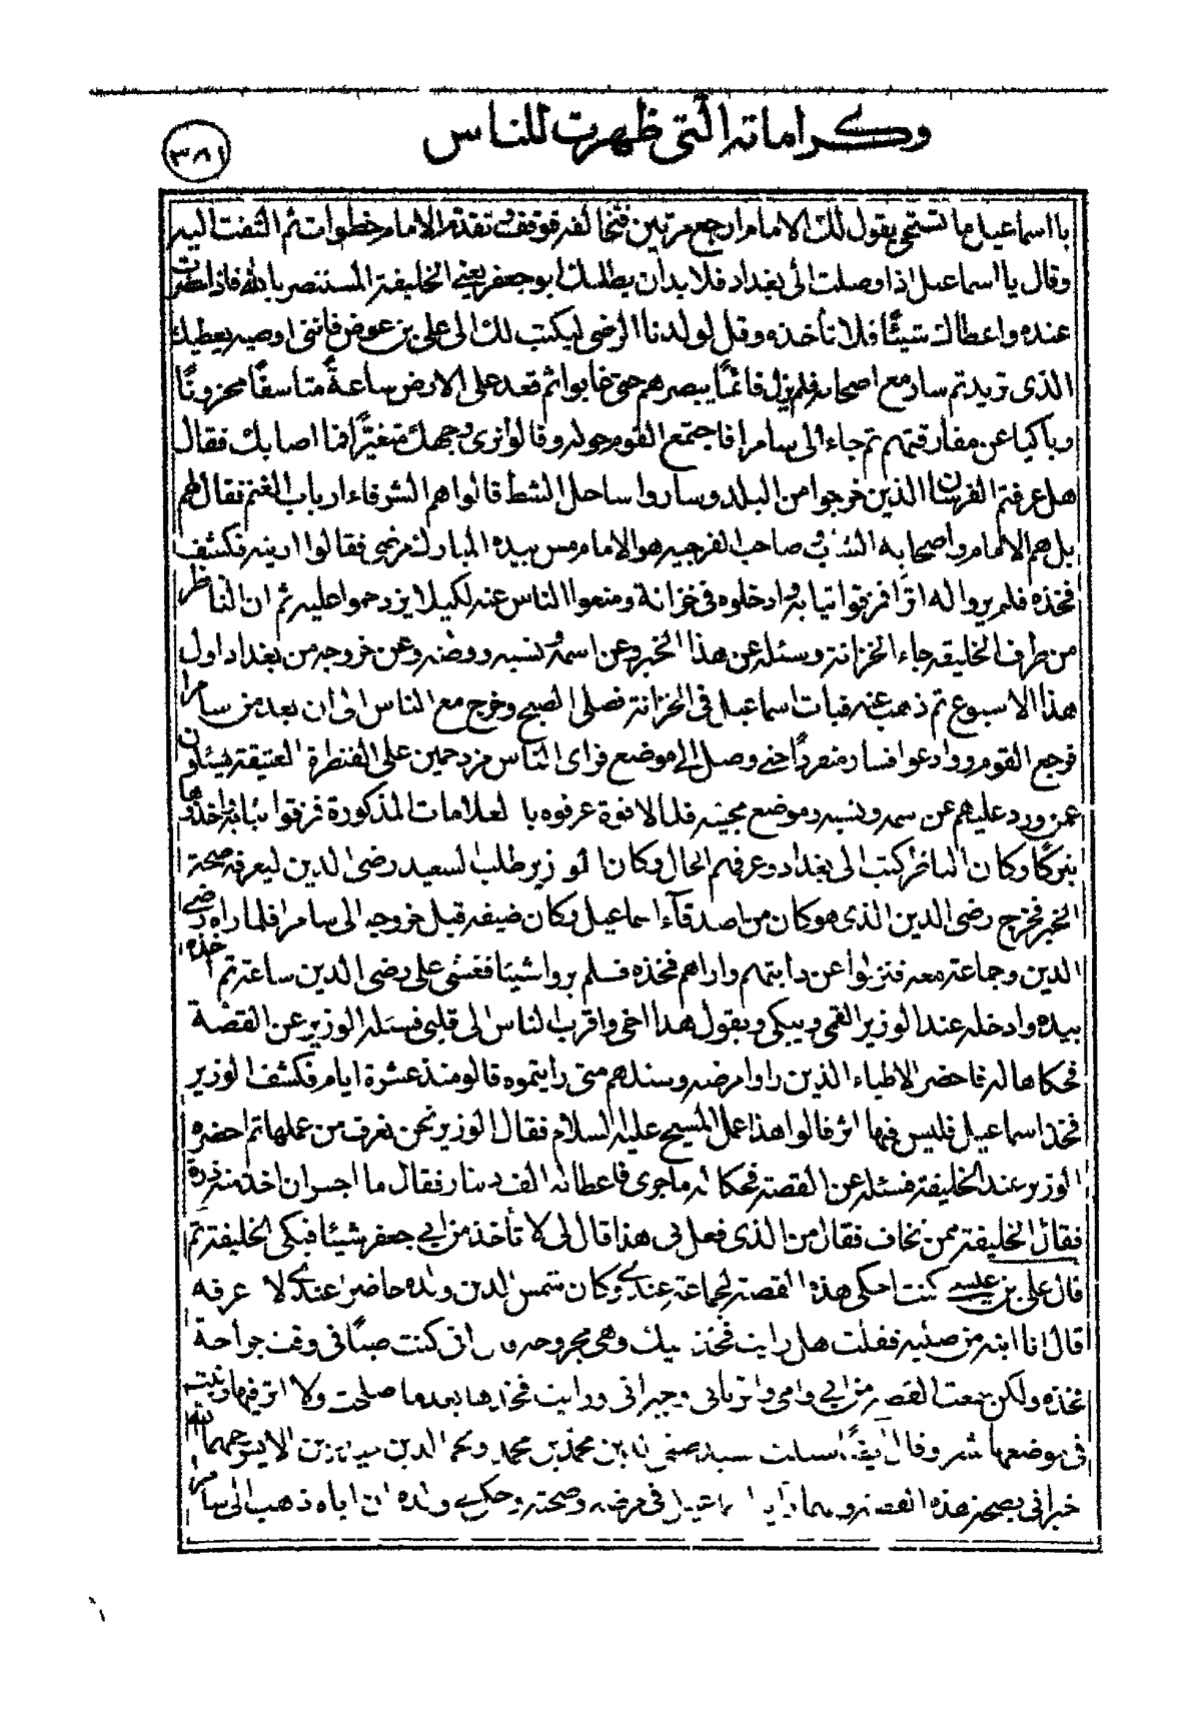 وكراماته التى ظهرت للناس
٣٨١
يا اسماعيل ما تستحى يقول لك الامام ارجع مرتين فتخالفه فوقف فتقدم الامام خطوات ثم التفت اليه
وقال يا اسماعيل اذا وصلت الى بغداد فلا بد أن يطلبك ابو جعفر يعنى الخليفة المستنصر بالله فاذا حضرت
عنده واعطاك شيئًا فلا تأخذه وقل لولدنا الرضى ليكتب لك الى على بن عوض فاننى اوصيه يعطيك
الذى تريد ثم سار مع اصحابه فلم يزل قائمًا يبصرهم حتى غابوا ثم قعد على الارض ساعةً متأسفًا محزونًا
وباكيا عن مفارقتهم ثم جاء الى سامرا فاجتمع القوم حوله وقالوا نرى وجهك متغيّرًا فما اصابك فقال
هل عرفتم الفرسان الذين خرجوا من البلد وساروا ساحل الشط قالوا هم الشرفاء ارباب الغنم فقال لهم
بل هم الامام واصحابه الشاب صاحب الفرجيه هو الامام مس بيده المباركة مرضى فقالوا ارينه فكشف
فخذه فلم يروا له اثرًا فمزقوا ثيابه وادخلوه فى خزانة ومنعوا الناس عنه لكيلا يزدحموا عليه ثم ان الناظر
من طرف الخليفه جاء الخزانة وسئله عن هذا الخبر وعن اسمه ونسبه ووطنه وعن خروجه من بغداد اول
هذا الاسبوع ثم ذهب عنه فبات اسماعيل فى الخزانة فصلى الصبح وخرج مع الناس الى ان بعد من سامرا
فرجع القوم وودعوا فسار منفردًا حتى وصل الى موضع فراى الناس مزدحمين على القنطرة العتيقة يسئلون
عمن ورد عليهم عن اسمه ونسبه وموضع مجيئه فلما لاقوه عرفوه بالعلامات المذكورة فمزقوا ثيابه اخذوها
تبركًا وكان الناظر كتب الى بغداد وعرفهم الحال وكان الوزير طلب السعيد رضى الدين ليعرفه صحة
الخبر فخرج رضى الدين الذى هو كان من اصدقآء اسماعيل وكان ضيفه قبل خروجه الى سامرا فلما راه رضى
الدين وجماعة معه فنزلوا عن دابتهم واراهم فخذه فلم يروا شيئا فغشى على رضى الدين ساعة ثم اخذه
بيده وادخله عند الوزير القمى ويبكى ويقول هذا اخى واقرب الناس الى قلبى فسئله الوزير عن القصة
فحكاها له فاحضر الاطباء الذين راوا مرضه وسئلهم متى رايتموه قالو منذ عشرة ايام فكشف الوزير
فخذ اسماعيل فليس فيها اثر قالوا هذا عمل المسيح عليه السلام فقال الوزير نحن نعرف من عملها ثم احضره
الوزير عند الخليفة فسئله عن القصة فحكا له ما جرى فاعطا له الف دينار فقال ما اجسر ان اخذ منه ذرة
فقال الخليفة ممن تخاف فقال من الذى فعل بى هذا قال لى لا تأخذ من ابى جعفر شيئا فبكى الخليفة ثم
قال على بن عيسى كنت احكى هذه القصة لجماعة عندى وكان شمس الدين ولده حاضرا عندى لا اعرفه
قال انا ابنه من صلبه فقلت هل رايت فخذ ابيك وهى مجروحه قال انى كنت صبيًا فى وقت جراحة
فخذه ولكن سمعت القصه من ابى وامى واقربائى وجيرانى ورايت فخذها بعد ما صلحت ولا اثر فيها ونبت
فى موضعها شعر وقال ايضًا سئلت سيد صفى الدين بن محمد بن محمد ونجم الدين حيدر بن الايسر رحمهما الله
خبرانى بصحة هذه القصة وانهما رأيا اسماعيل فى مرضه وصحته وحكى ولده ان اباه ذهب الى سامرا